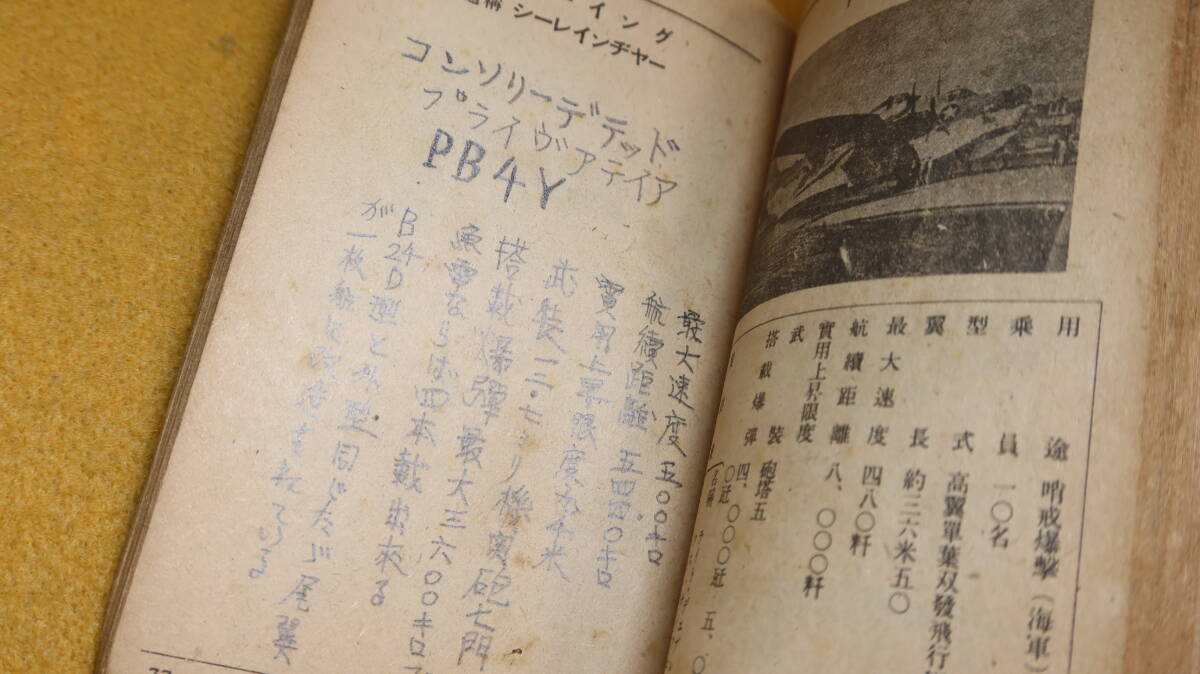 イング
シーレインヂャー
コンソリーデテッド
プライヴアテイア
PB4Y
最大速度五〇〇キロ
航續距離五四四〇キロ
實用上昇限度九千米
武装一二・七ミリ機關砲七門
搭載爆彈最大三六〇〇キロ
魚雷ならば四本載出來る
B24D型と外型同じだが尾翼
が一枚舵と改造されている
用途 哨戒爆擊(海軍)
乘員 一〇名
型式 高翼單葉双發飛行
翼長 約三六米五〇
最大速度 四八〇粁
航續距離 八、〇〇〇粁
實用上昇限度
武装 砲塔五
搭載爆彈 四、〇〇〇瓩